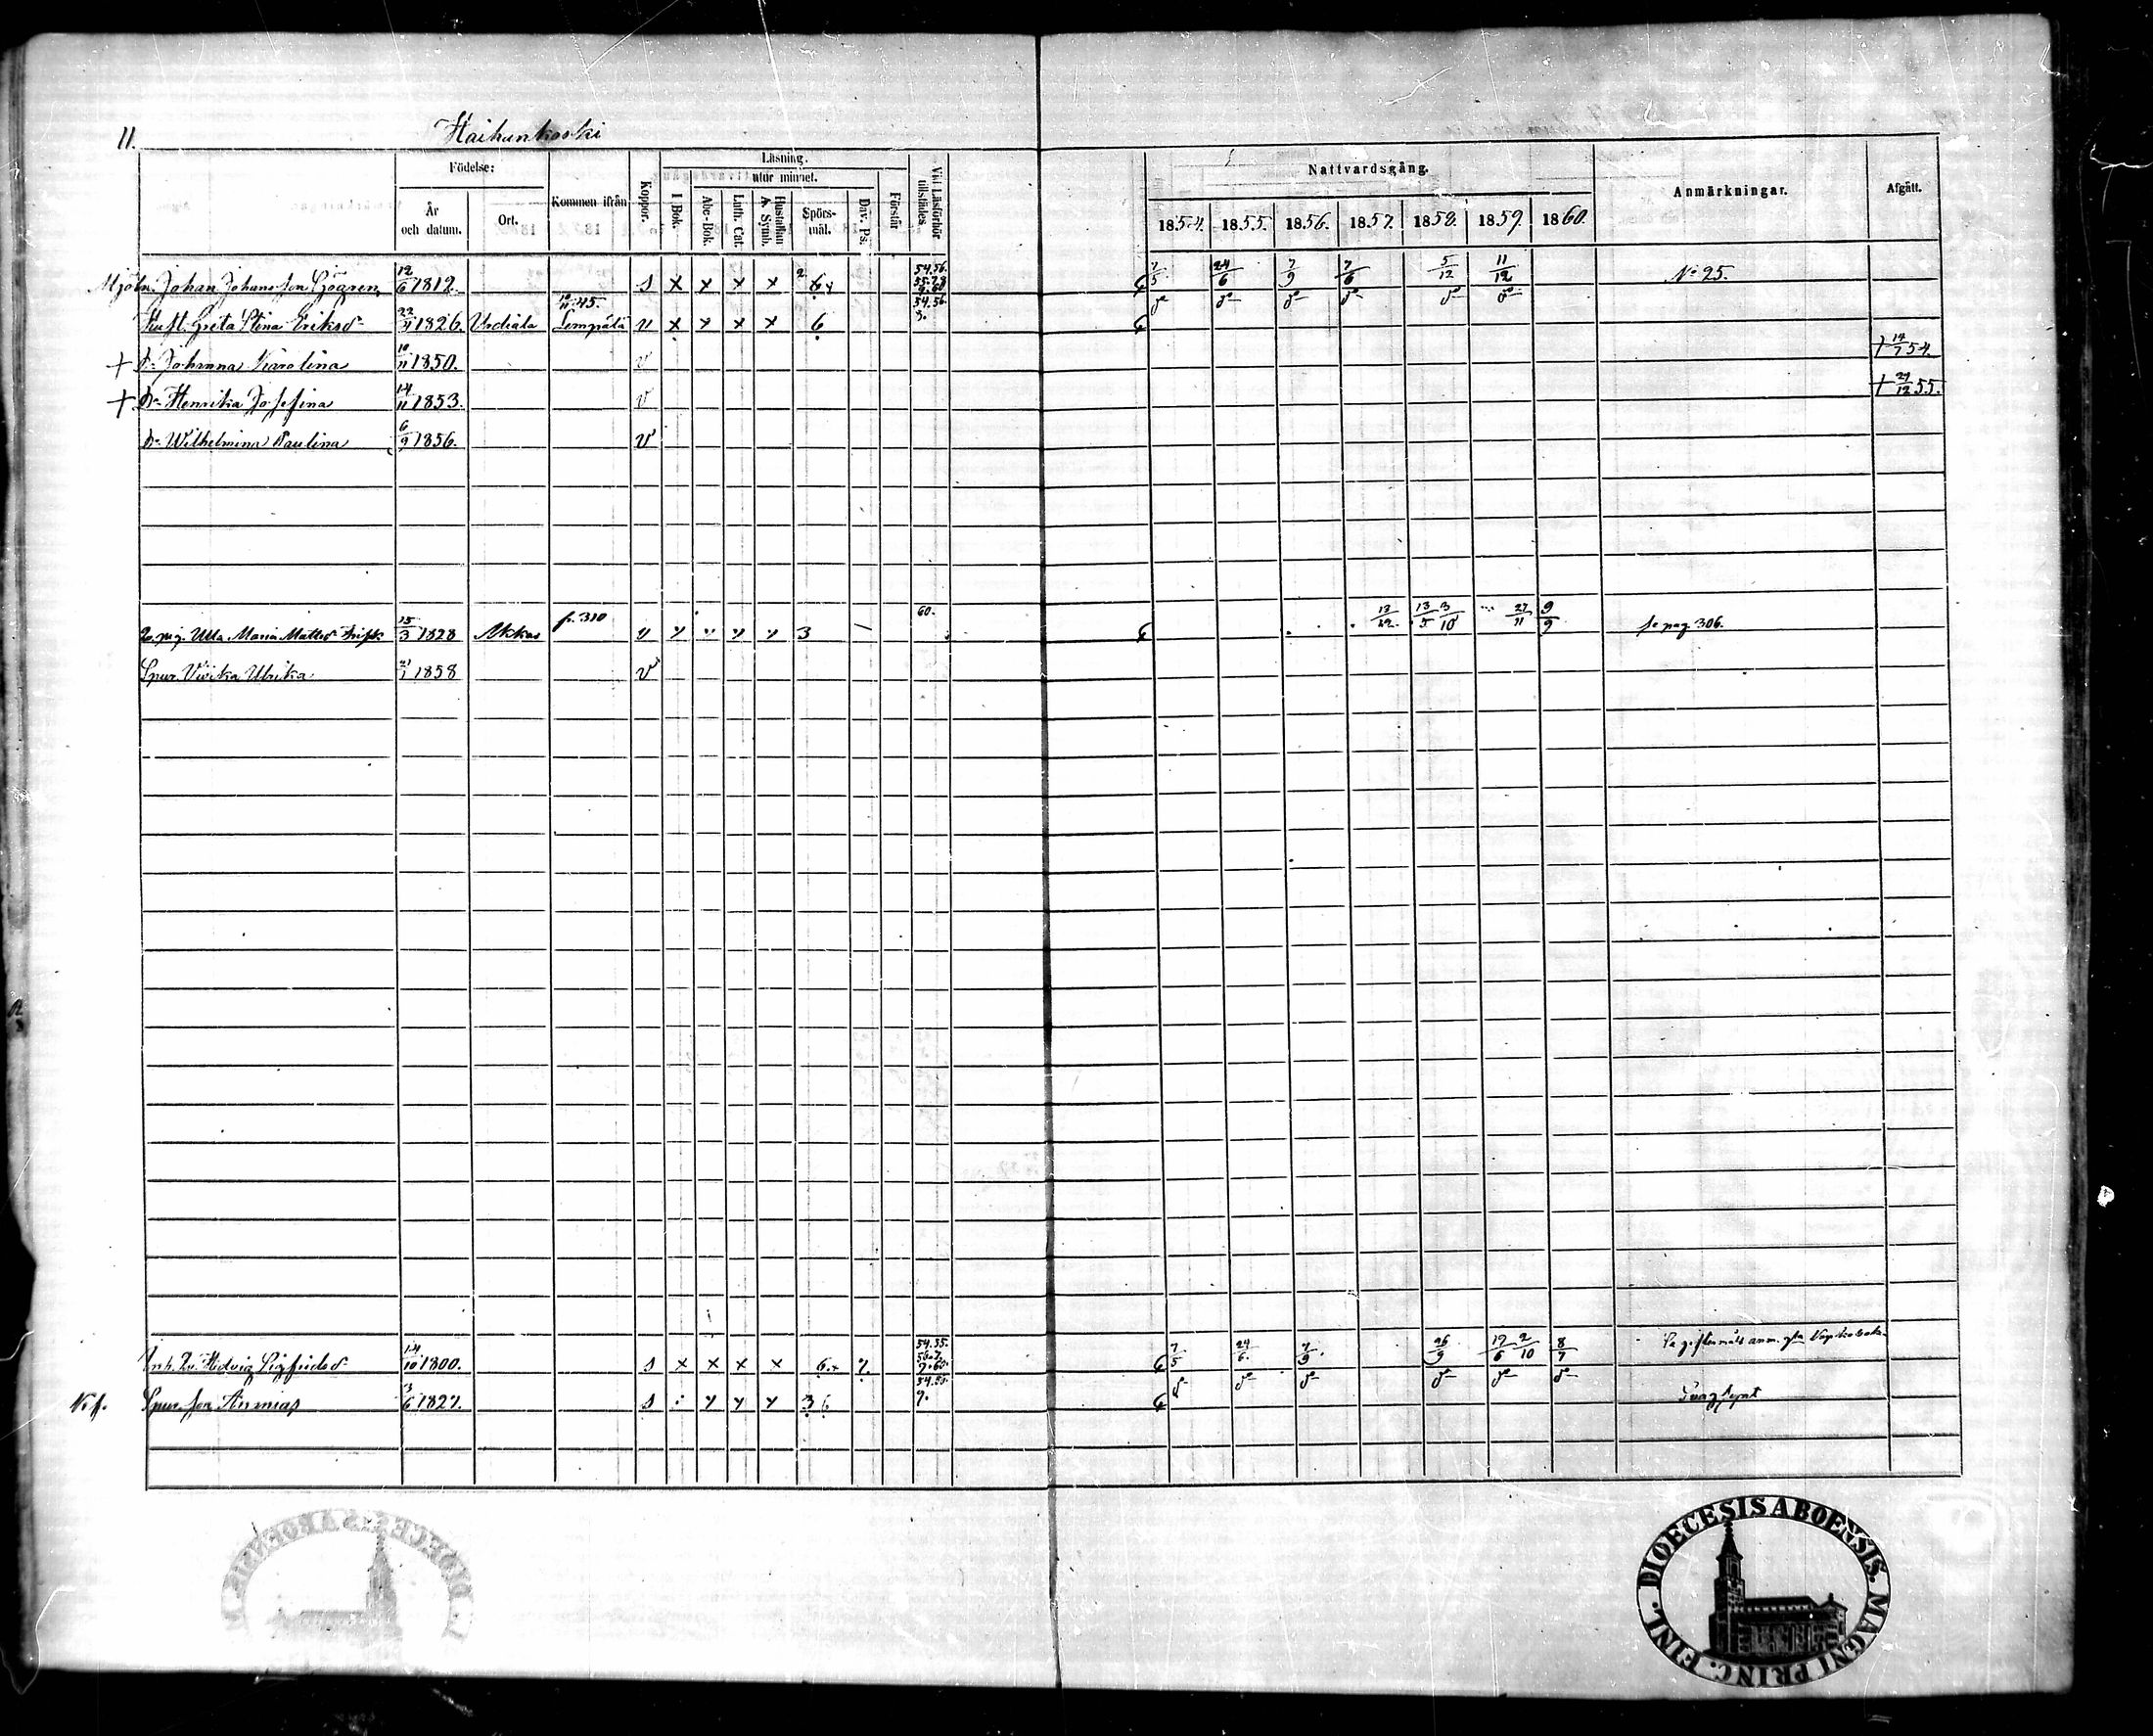 11. Haihunkoski
Födelse: År och datum. Ort. Kommen ifrån Koppor. Läsning. I Bok. utur minnet. Abc-Bok. Luth. Cat. Hustaflan A. Symb. Spörsmål. Dav. Ps. Förstår Vid Läsförhör tillstädes Nattvardsgång. 1854. 1855. 1856. 1857. 1858. 1859. 1860. Anmärkningar. Afgått.
Mjöln. Johan Johansson Sjögren 12/6 1812. s x x x x 2 6 x 54.56. 7/5 24/6 7/9 7/6 5/12 11/12 No 25.
Hust. Greta Stina Eriksdr 22/11 1826. Urdiala 45. Lempälä v x x x x 6 54.56. do do do do do do
+ dr Johanna Karolina 10/11 1850. v + 14/7 54.
+ dr Henrika Josefina 14/11 1853. v + 21/12 55.
dr Wilhelmina Paulina 6/9 1856. v
Ulla Maria Mattsdr 15/3 1828 Akkas fr. 310 v 3 60. 13/5 3/10 27/11 9/9 se pag. 306.
Spur. Vivika Ulrika 1858 v
Inh. Hedvig Sigfridsdr 14/10 1800. s x x x x 6 x 7/5 24/6 7/9 26/9 19/6 2/10 8/7
Spur. son Ananias 3/6 1827. s 3 6 do do do do do do
DIOECESIS ABOËNSIS. MAGNI PRINC. FINL.